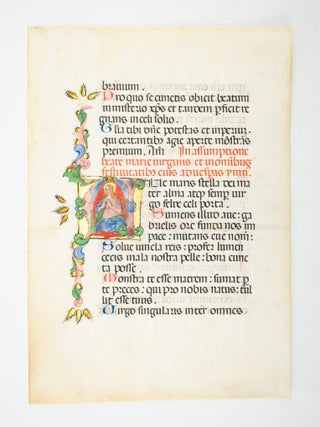 branium.
Pro quo se cunctis obicit beatum
in misterio xp̄s et tandem p̄ficit re
gnans in celi solio.
Sit tibi x̄p̄e potestas et inperium
qui certantibus agie aperte mōstras
premium. Am̄ In assumptione
beate marie virginis et in omnibus
festiuitatibus eius. ad uesp̄as ymn.
Aue maris stella dei ma
ter alma atq̄ semper uir
go felix celi porta.
Sumens illut aue: ga
brielis ore funda nos in
pace: mutans eue nom̄:
Solue uincla reis: profer lumen
cecis mala nostra pelle: bona cunc
ta posce.
Monstra te esse matrem: sumat p̄
te preces: qui pro nobis natus: tul
lit esse tuus.
Virgo singularis inter omnes